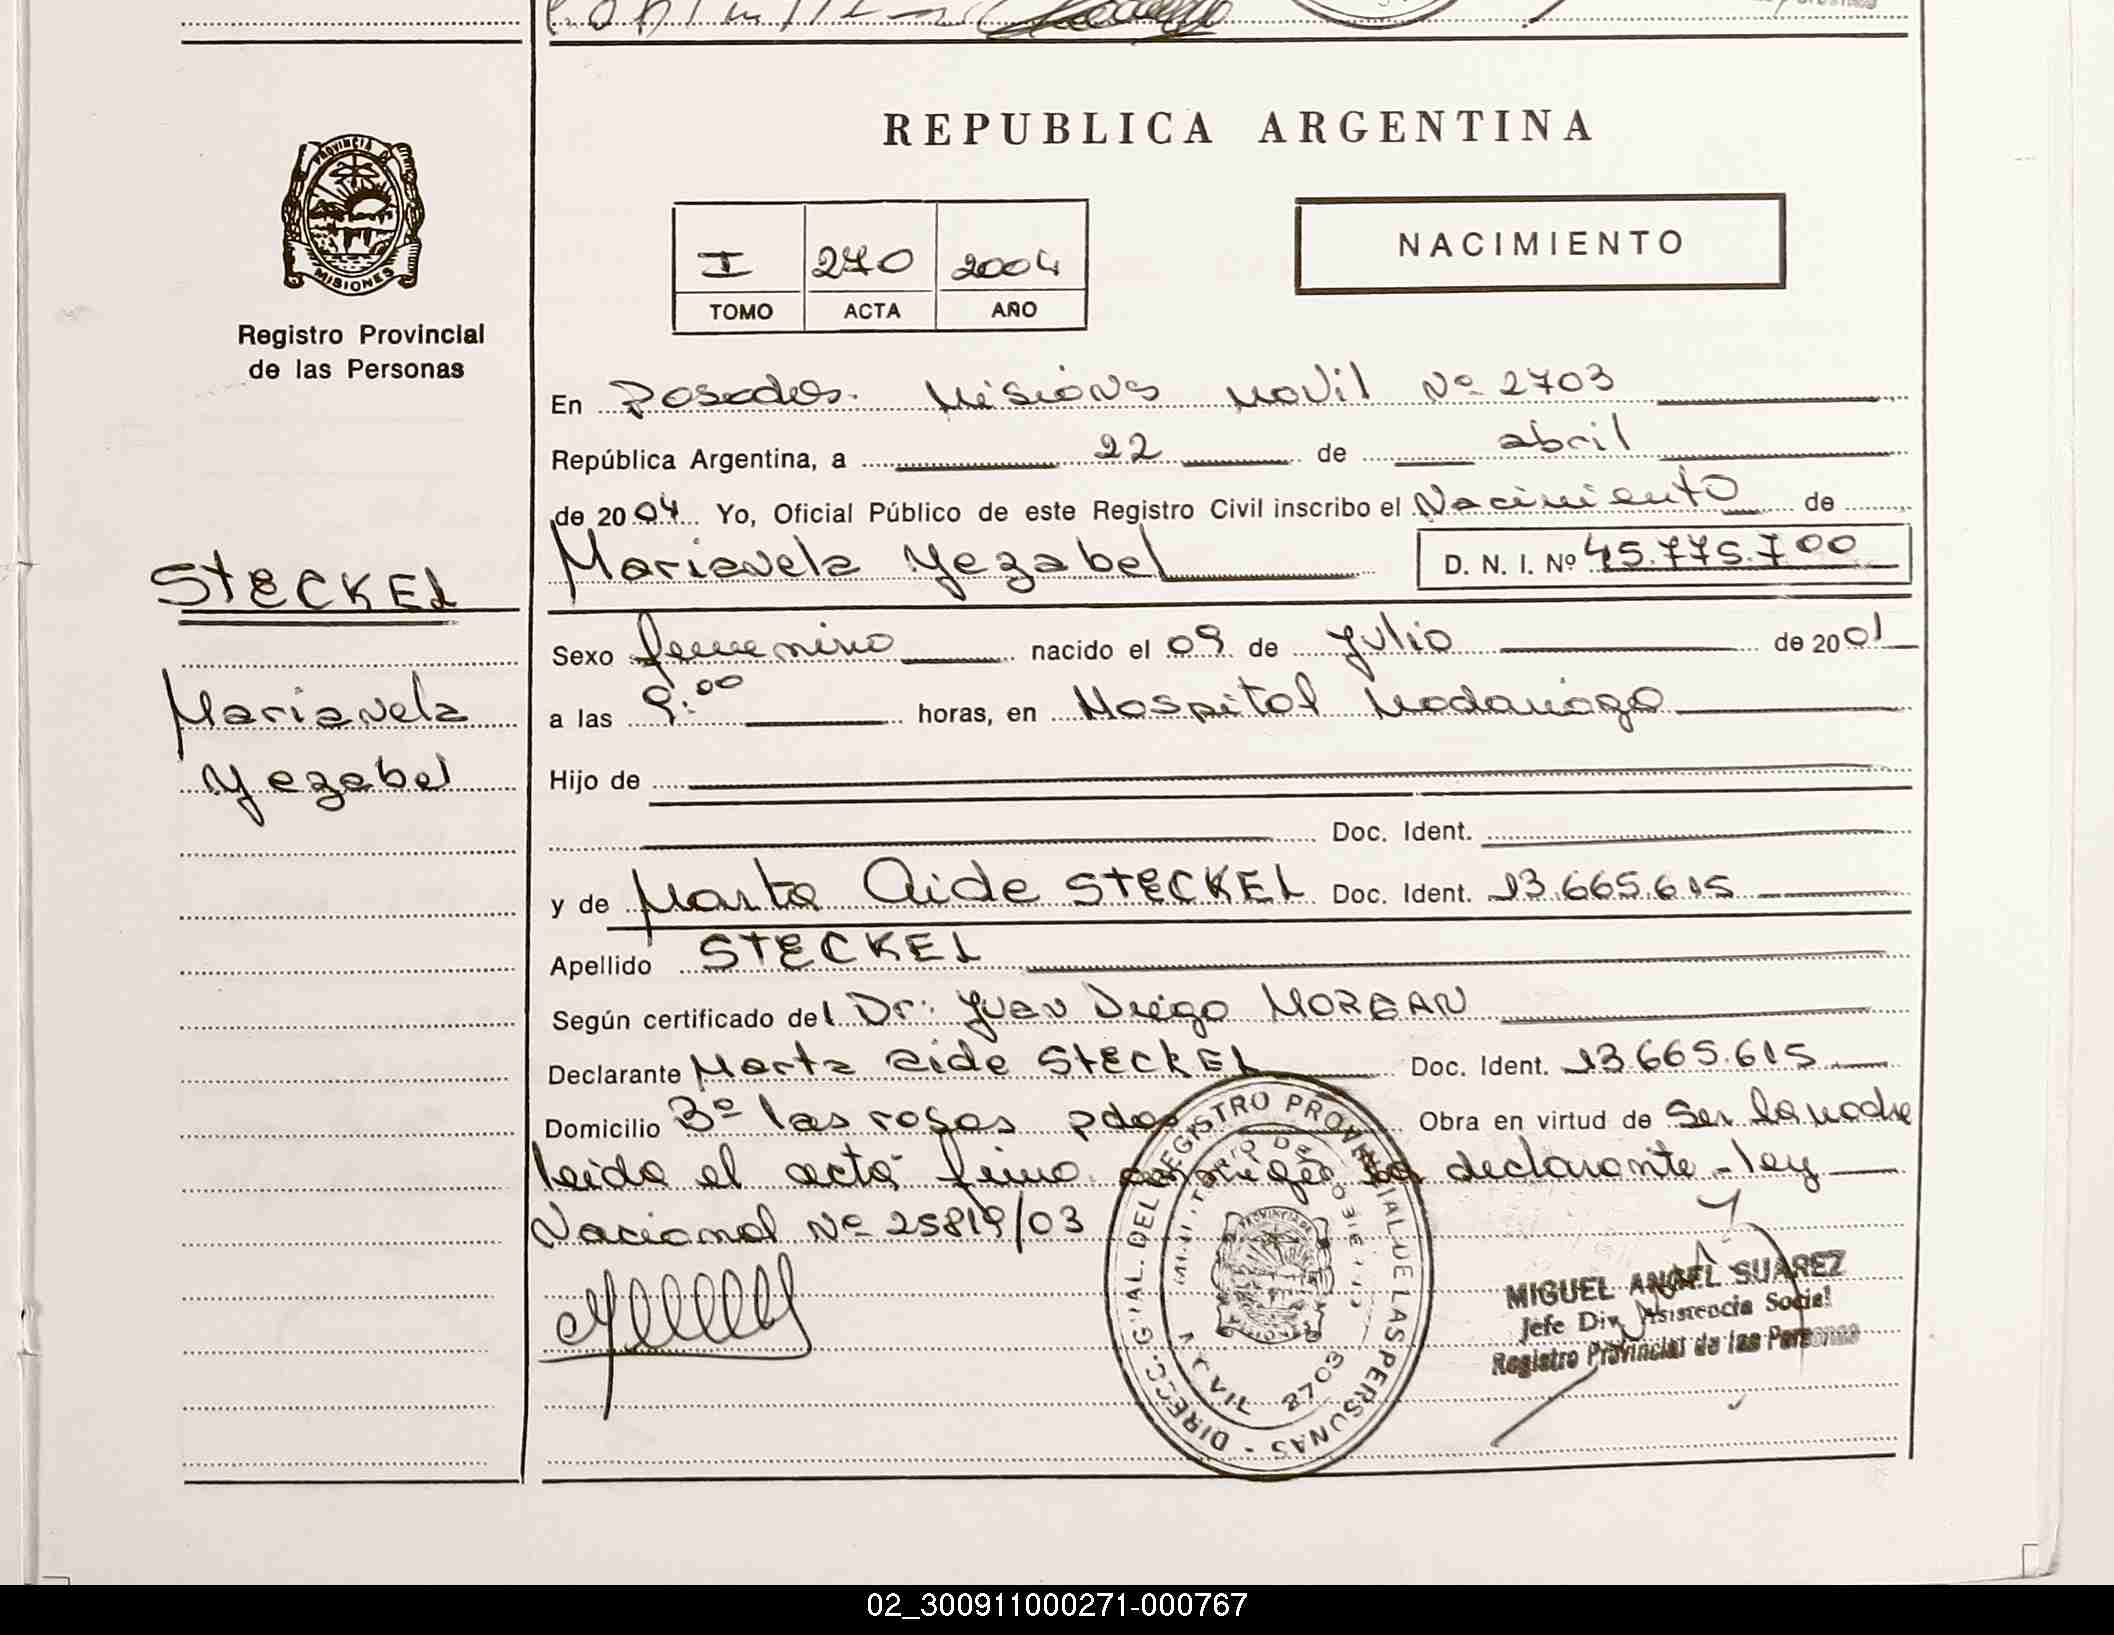 REPUBLICA ARGENTINA
PROVINCIA DE
MISIONES
Registro Provincial
de las Personas
I 270 2004
TOMO ACTA AÑO
NACIMIENTO
En Posadas. Misiones Movil Nº 2703
República Argentina, a 22 de abril
de 2004 Yo, Oficial Público de este Registro Civil inscribo el Nacimiento de
Marianela Yezabel D. N. I. Nº 45.775.700
STECKEL
Marianela
Yezabel
Sexo femenino nacido el 09 de Julio de 2001
a las 9:00 horas, en Hospital Madariaga
Hijo de
Doc. Ident.
y de Marta Aide STECKEL Doc. Ident. 13.665.615
Apellido STECKEL
Según certificado del Dr: Juan Diego MORGAN
Declarante Marta aide STECKEL Doc. Ident. 13.665.615
Domicilio Bº las rosas pdas Obra en virtud de Ser la madre
leida el acta firma conmigo la declarante - ley
Nacional Nº 25819/03
DIRECC. G'RAL. DEL REGISTRO PROVINCIAL DE LAS PERSONAS
MINISTERIO DE GOBIERNO
2703
MIGUEL ANGEL SUAREZ
Jefe Div. Asistencia Social
Registro Provincial de las Personas
02_300911000271-000767